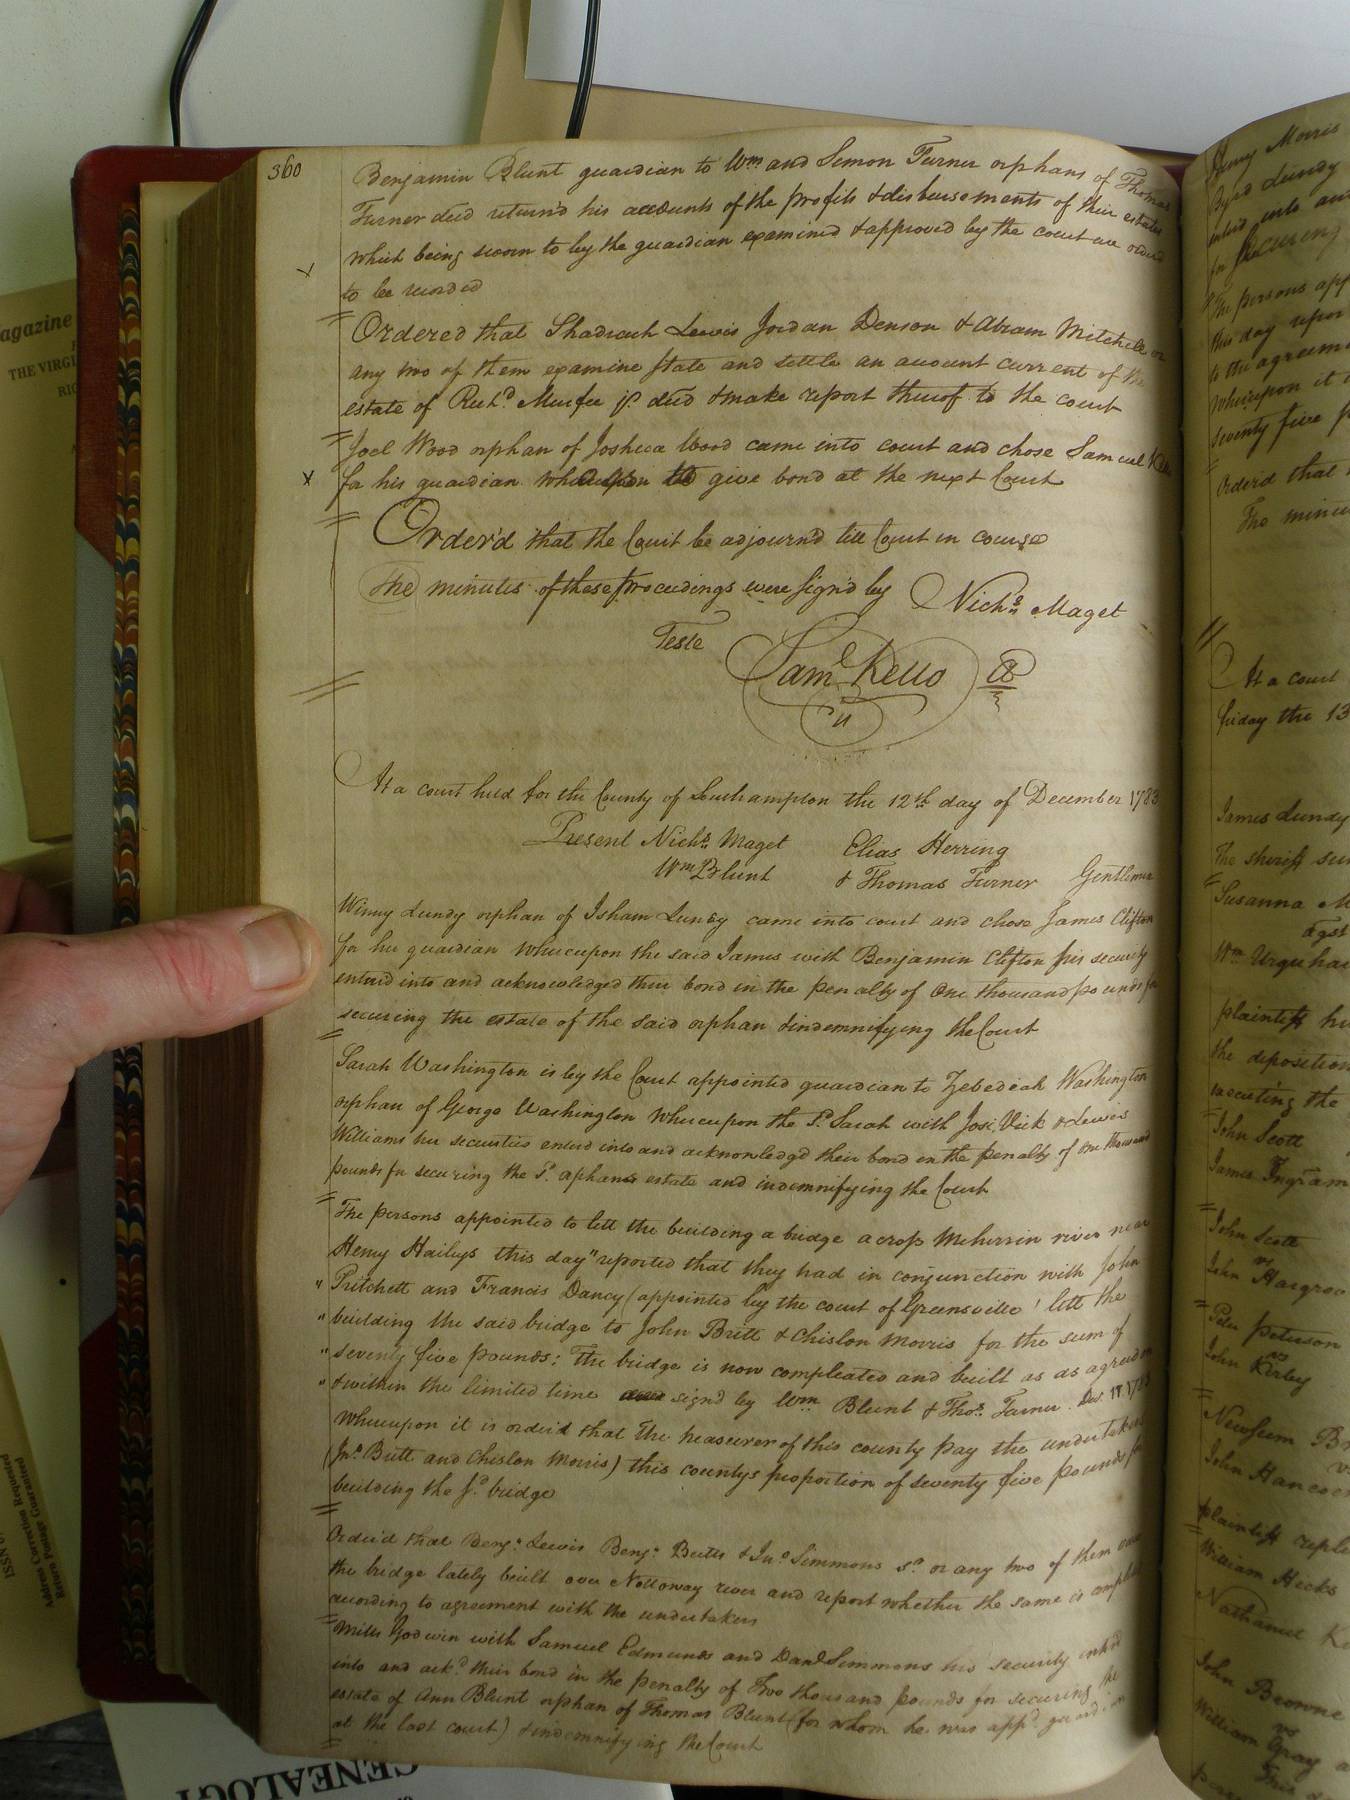 360
Benjamin Blunt guardian to Wm and Simon Turner orphans of Thomas
Turner decd return'd his accounts of the profits & disbursements of their estates
which being sworn to by the guardian examined & approved by the court are orderd
to be recorded
Ordered that Shadrach Lewis Jordan Denson & Abram Mitchell or
any two of them examine state and settle an account current of the
estate of Richd Murfee jr decd & make report thereof to the court
Joel Wood orphan of Joshua Wood came into court and chose Samuel
X for his guardian whereupon to give bond at the next Court
Order'd that the Court be adjourn'd till Court in course
The minutes of these proceedings were sign'd by Nichs Maget
Teste
Saml Kello
At a court held for the County of Southampton the 12th day of December 1783
Present Nichs Maget Elias Herring
Wm Blunt & Thomas Turner Gentlemen
Winny Lundy orphan of Isham Lundy came into court and chose James Clifton
for her guardian whereupon the said James with Benjamin Clifton his security
enterd into and acknowledged their bond in the penalty of One thousand pounds for
securing the estate of the said orphan & indemnifying the Court
Sarah Washington is by the Court appointed guardian to Zebedeah Washington
orphan of George Washington whereupon the sd Sarah with Josi. Vick & Lewis
Williams her securities enterd into and acknowledgd their bond in the penalty of one thousand
pounds for securing the sd orphans estate and indemnifying the Court
The persons appointed to lett the building a bridge across Meherrin river near
Henry Haileys this day "reported that they had in conjunction with John
" Pritchett and Francis Dancy (appointed by the court of Greensville) lett the
" building the said bridge to John Britt & Chislon Morris for the sum of
" seventy five pounds; The bridge is now compleated and built as as agreed on
" & within the limited time signd by Wm Blunt & Thos. Turner. Decr 11 1783
whereupon it is orderd that the treasurer of this county pay the undertakers
(Jno Britt and Chislon Morris) this countys proportion of seventy five pounds for
building the sd bridge
Orderd that Benja Lewis Benja Butts & Jno Simmons sr or any two of them
the bridge lately built over Nottoway river and report whether the same is
according to agreement with the undertakers
Mills Godwin with Samuel Edmunds and Danl Simmons his security enterd
into and ackd their bond in the penalty of Two thousand pounds for securing the
estate of Ann Blunt orphan of Thomas Blunt (for whom he was appd guardian
at the last court) & indemnifying the Court
Henry Morris
Byrd Lundy
enterd into and
for securing
The persons app
this day upon
to the agreem
whereupon it
seventy five p
Orderd that
The minu
At a court
friday the 13
James Lundy
The sheriff
Susanna M
Agst
Wm Urquha
plaintiff
the deposition
executing the
John Scott
James Ingram
John Scott
vs
John Hargrov
Peter Peterson
vs
John Kirby
Newsum Br
vs
John Hancoc
plaintiff reple
William Hicks
Nathaniel
John Browne
vs
William Gray
This
agazine
THE VIRGI
RIC
ISSN 0
Address Correction Requested
Return Postage Guaranteed
GENEALOGY